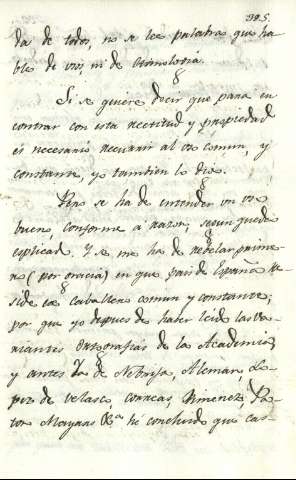 395.
da de todos, no se lee palabra que ha-
ble de uso, ni de etimología.
§
Si se quiere decir que para en
contrar con esta rectitud y propiedad
es necesario recurrir al uso comun, y
constante, yo tambien lo digo.
§
Pero se ha de entender un uso
bueno, conforme à razon; segun quedo
esplicado. Y se me ha de revelar prime-
ro (por gracia) en que pais de España re-
side ese caballero comun y constante;
§
por que yo despues de haber leido las va-
riantes Ortografias de la Academia
§
y antes las de Nebrija, Aleman, Lo-
pez de Velasco, Correas, Ximenez, Pa-
ton Mayans &.ª hé concluido que cas-